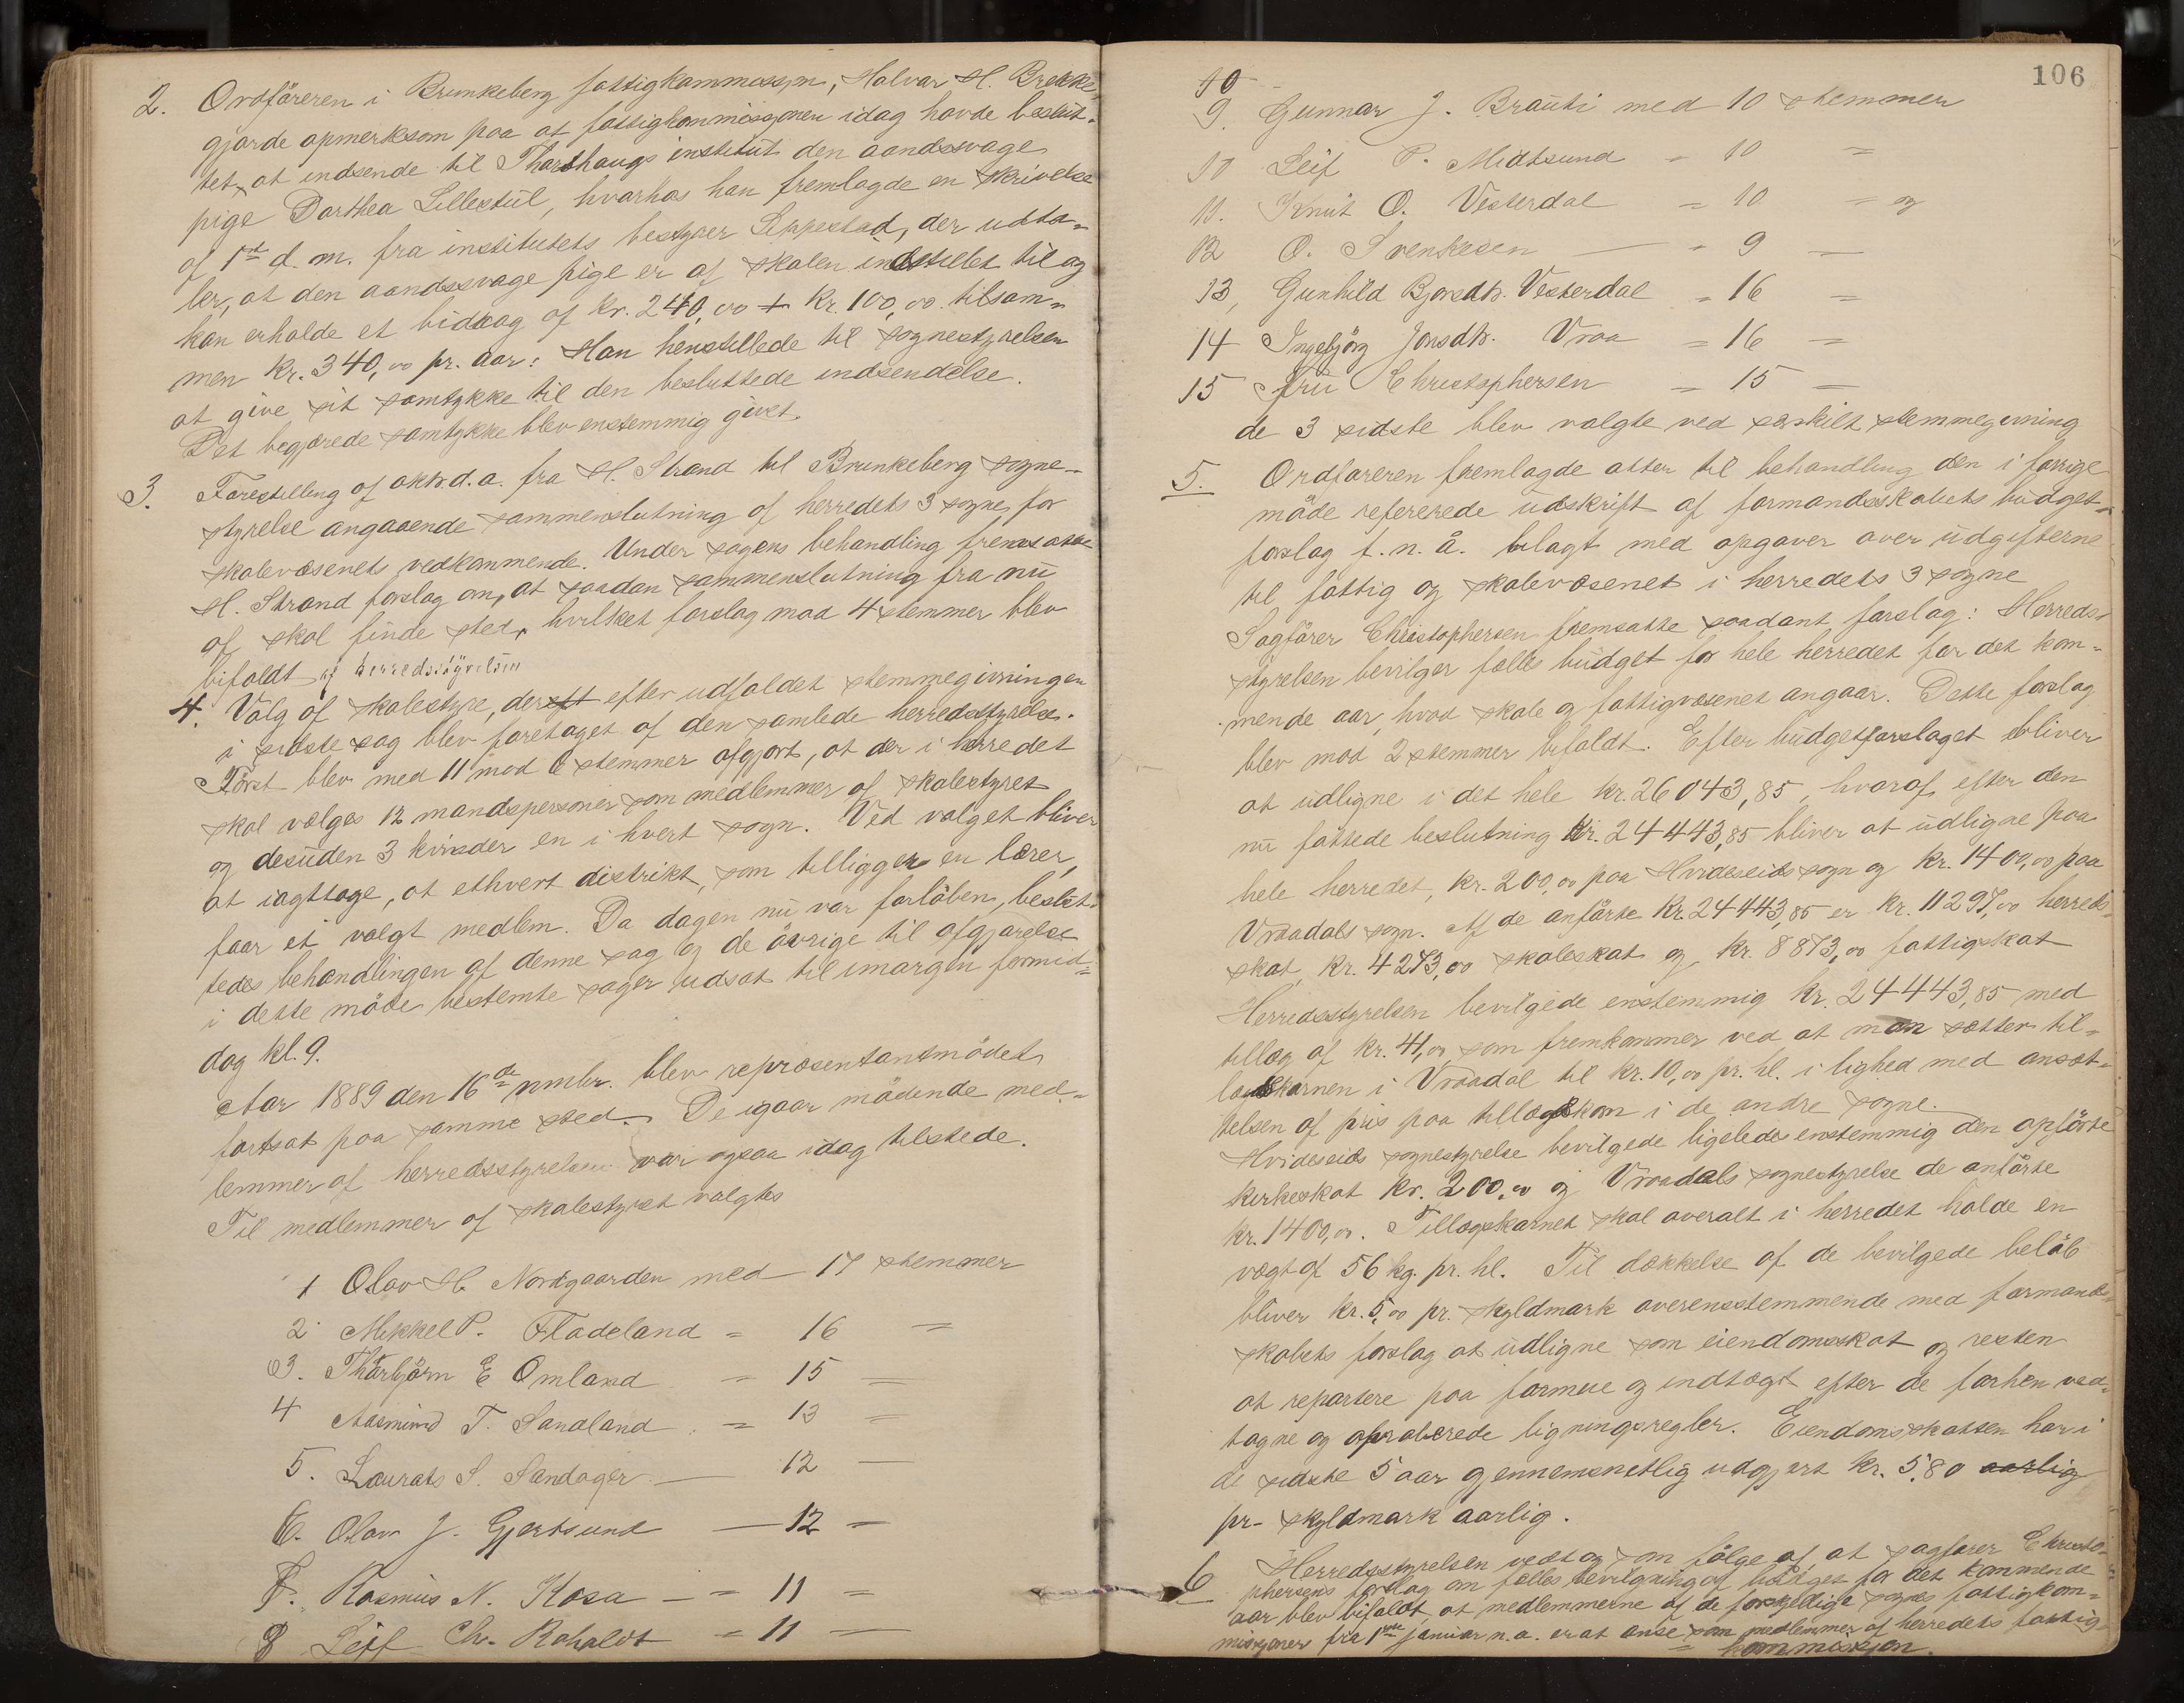 2. Ordföreren i Brunkeberg fattigkommissjon, Halvar H. Brekke,
gjorde opmerksom paa at fattigkommissjonen idag havde beslut-
tet, at indsende til Tharshaugs institut den aandssvage
pige Darthea Lillestül, hvorhos han fremlagde en skrivelse
af 1st d. m. fra institutets bestyrer Lippestad, der udta-
ler, at den aandssvage pige er af skolen indstillet til og
kan erholde et bidrag af kr. 240,00 + kr. 100,00 tilsam-
men kr. 340,00 pr. aar: Han henstillede til sognestyrelsen
at give sit samtykke til den besluttede indsendelse.
Det begjærede samtykke blev enstemmig givet.
3. Forestilling af oktr. d. a. fra H. Strand til Brunkeberg sogne-
styrelse angaaende sammenslutning af herredets 3 sogne, for
skolevæsenets vedkommende. Under sagens behandling fremsatte
H. Strand forslag om, at saadan sammenslutning fra nü
af skal finde sted, hvilket forslag mod 4 stemmer blev
bifaldt af herredsstyrelsen
4. Valg af skolestyre, der efter udfaldet stemmegivningen
i sidste sag blev foretaget af den samlede herredsstyrelse.
Först blev med 11 mod 6 stemmer afgjort, at der i herredet
skal vælges 12 mandspersoner som medlemmer af skolestyret
og desüden 3 kvinder en i hvert sogn. Ved valget bliver
at iagttage, at ethvert distrikt, som tilligger en lærer,
faar et valgt medlem. Da dagen nü var forlöben, beslut-
tedes behandlingen af denne sag og de övrige til afgjørelse
i dette möde bestemte sager udsat til imorgen formid-
dag kl. 9.
Aar 1889 den 16de nvmbr. blev repræsentantmödet
fortsat paa samme sted. De igaar mödende med-
lemmer af herredsstyrelsen var ogsaa idag tilstede.
Til medlemmer af skolestyret valgtes
1 Olav H. Nordgaarden med 17 stemmer
2 Mikkel P. Fladeland = 16 =
3. Tharbjörn E Omland = 15 =
4 Aasmund T. Sandland = 13 =
5. Laurats S. Sandager — 12 —
6. Olav J. Gjertsund — 12 =
7. Rasmus N. Kosa — = 11 =
8 Leif Ch. Roholdt = 11 =
106
10
9. Gunnar J. Brauti med 10 stemmer
10 Leif P. Midtsund = 10 =
11. Knut O. Vesterdal = 10 = og
12 O. Svenkesen — = 9 =
13, Gunhild Bjorsdtr. Vesterdal = 16 =
14 Ingebjörg Jonsdtr. Vraa = 16 =
15 Frü Christophersen = 15 =
de 3 sidste blev valgte ved særskilt stemmegivning
5. Ordföreren fremlagde atter til behandling den i forrige
möde refererede üdskrift af formandsskabets budget-
forslag f. n. å. bilagt med opgaver over üdgifterne
til fattig og skolevæsenet i herredets 3 sogne
Sagförer Christophersen fremsatte saadant forslag: Herreds-
styrelsen bevilger fælles büdget for hele herredet for det kom-
mende aar, hvad skole og fattigvæsenet angaar. Dette forslag
blev mod 2 stemmer bifaldt. Efter büdgetforslaget bliver
at üdligne i det hele kr. 26043,85, hvoraf efter den
nu fattede beslutning kr. 24443,85 bliver at üdligne paa
hele herredet, kr. 200,00 paa Hvideseids sogn og kr. 1400,00 paa
Vraadals sogn. Af de anförte kr. 24443,85 er kr. 11297,00 herreds-
skat, kr. 4273,00 skoleskat og kr. 8873,00 fattigskat
Herredsstyrelsen bevilgede enstemmig kr. 24443,85 med
tillæg af kr. 41,00, som fremkommer ved at man sætter til-
lægskornen i Vraadal til kr. 10,00 pr. hl. i lighed med ansæt-
telsen af pris paa tillægskorn i de andre sogne.
Hvideseids sognestyrelse bevilgede ligeledes enstemmig den opförte
kirkeskat kr. 200,00 og Vraadals sognestyrelse de anförte
kr. 1400,00. Tillægskornet skal overalt i herredet holde en
vægt af 56 kg. pr. hl. Til dækkelse af de bevilgede belöb
bliver kr. 5,00 pr. skyldmark overensstemmende med formand-
skabets forslag at üdligne som eiendomsskat og resten
at repartere paa formue og indtægt efter de forhen ved-
tagne og aproberede ligningsregler. Eiendomsskatten har i
de sidste 5 aar gjennemsnetlig udgjort kr. 5,80 aarlig
pr. skyldmark aarlig.
6 Herredsstyrelsen vedtog som fölge af, at sagförer Christo-
phersens forslag om fælles bevilgning af büdget for det kommende
aar blev bifaldt, at medlemmerne af de forskjellige sognes fattigkom-
missjoner fra 1ste januar n. a. er at anse som medlemmer af herredets fattig-
kommissjon.